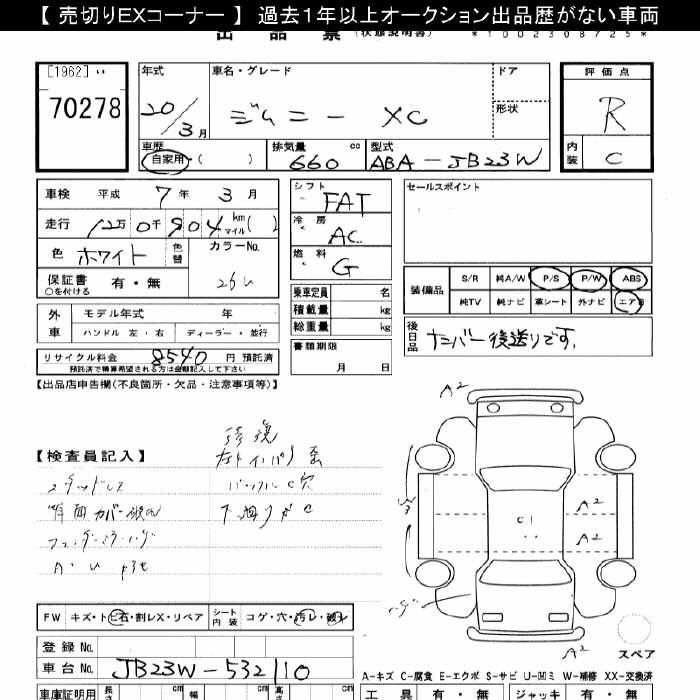 【 売切りEXコーナー 】 過去１年以上オークション出品歴がない車両
出品票 (状態説明書) *1002308725*
[1962] い
70278
年式 20/3月
車名・グレード ジムニー XC
ドア
形状
評価点 R
内装 C
車歴 自家用・( )
排気量 660 cc
型式 ABA-JB23W
車検 平成 7年 3月
走行 12万0千904 km マイル( )
色 ホワイト 色替
カラーNo. 26U
保証書 有・無
○を付ける
外車 モデル年式 年
ハンドル 左・右 ディーラー・並行
リサイクル料金 8540 円 預託済
預託済で精算希望される方は金額記入して下さい
シフト FAT
冷房 AC
燃料 G
乗車定員 名
積載量 kg
総重量 kg
書類期限 月 日
セールスポイント
装備品 S/R 純A/W P/S P/W ABS
純TV 純ナビ 革シート 外ナビ エアB
後日品 ナンバー後送りです。
【出品店申告欄(不良箇所・欠品・注意事項等)】
【検査員記入】
修復
下廻りサC
A・U
A2
A2
A2
C1
A2
スペア
FW キズ・トビ石・割レX・リペア シート内装 コゲ・穴・汚レ・破レ
登録No.
車台No. JB23W-532110
A-キズ C-腐食 E-エクボ S-サビ U-凹ミ W-補修 XX-交換済
車庫証明用 長さ cm 幅 cm 高さ cm
工具 有・無 ジャッキ 有・無